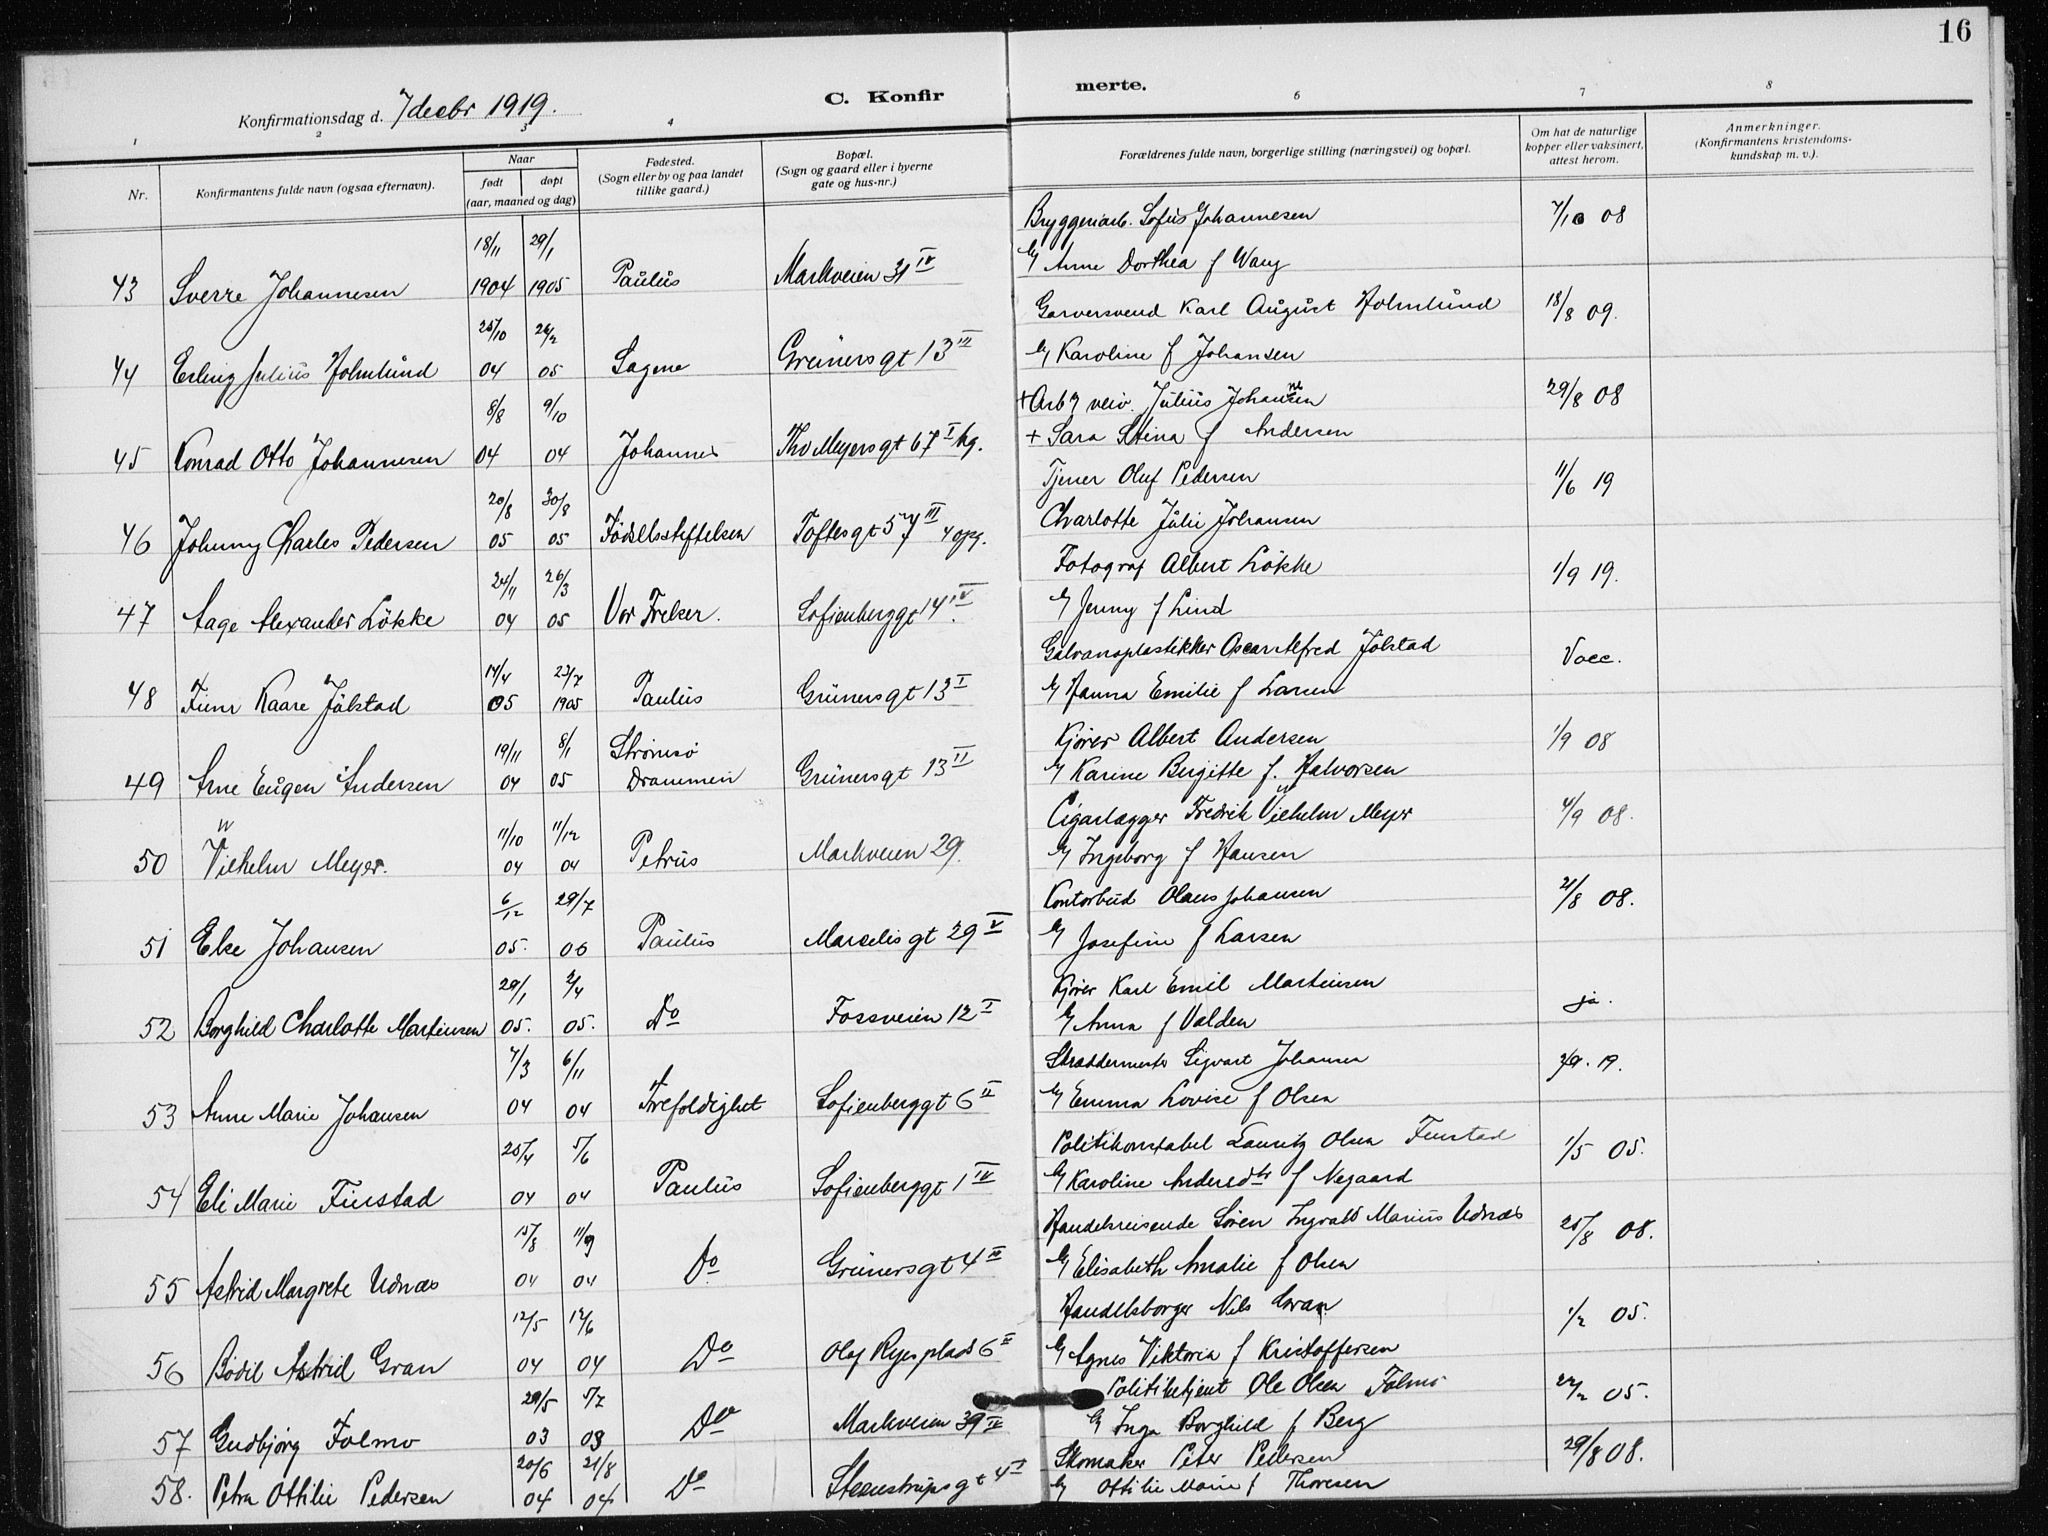 16
Konfirmationsdag d. 7 decbr 1919.
C. Konfirmerte.
1 2 3 4 6 7 8
Nr.
Konfirmantens fulde navn (ogsaa efternavn).
Naar
født døpt
(aar, maaned og dag)
Fødested.
(Sogn eller by og paa landet
tillike gaard.)
Bopæl.
(Sogn og gaard eller i byerne
gate og hus-nr.)
Forældrenes fulde navn, borgerlige stilling (næringsvei) og bopæl.
Om hat de naturlige
kopper eller vaksinert,
attest herom.
Anmerkninger.
(Konfirmantens kristendoms-
kundskap m. v.).
18/11 29/1 Bryggeriarb. Sofus Johannesen 7/10 08
43 Sverre Johannesen 1904 1905 Paulus Markveien 31 IV Anne Dorthea f Wang
25/10 26/2 Garversvend Karl August Holmlund 18/8 09.
44 Erling Julius Holmlund 04 05 Sagene Grünersgt 13 III Karoline f Johansen
8/8 9/10 + Arb v veiv. Julius Johansen 29/8 08
45 Konrad Otto Johannesen 04 04 Johannes Thv Meyersgt 67 I hg. + Sara Stina f Andersen
20/8 30/8 Tjener Oluf Pedersen 11/6 19
46 Johnny Charles Pedersen 05 05 Fødselsstiftelsen Toftesgt 57 III 4 opg. Charlotte Julie Johansen
24/11 26/3 Fotograf Albert Løkke 1/9 19.
47 Aage Alexander Løkke 04 05 Vor Frelser. Sofienberggt 14 IV. Jenny f Lind
14/4 23/7 Galvanoplastikker Oscar Alfred Jølstad Vacc.
48 Finn Kaare Jølstad 05 1905 Paulus Grünersgt 13 I Hanna Emilie f Larsen
19/11 8/1 Strømsø Kjører Albert Andersen 1/9 08
49 Arne Eugen Andersen 04 05 Drammen Grünersgt 13 II Karine Birgitte f. Halvorsen
W 11/10 11/12 Cigarlægger Fredrik Vilhelm Meyer 4/9 08.
50 Vilhelm Meyer. 04 04 Petrus Markveien 29. Ingeborg f Hansen
6/12 29/7 Kontorbud Olaus Johansen 21/8 08.
51 Else Johansen 05. 06 Paulus Marselisgt 29 V Josefine f Larsen
29/1 2/4 Kjører Karl Emil Martinsen ja.
52 Borghild Charlotte Martinsen 05. 05. Do Fossveien 12 I Anna f Valden
7/3 6/11 Skræddermester Sigvart Johansen 19.
53 Anne Marie Johansen 04 04 Trefoldighet Sofienberggt 6 II Emma Lovise f Olsen
25/4 5/6 Politikonstabel Lauritz Olsen Finstad 1/5 05.
54 Eli Marie Finstad 04 04 Paulus Sofienberggt 1 IV Karoline Andersdtr f Negaard
15/8 11/9 Handelsreisende Søren Ingvald Marius Udnæs 25/8 08.
55 Astrid Margrete Udnæs 04 04 Do Grünersgt 4 III Elisabeth Amalie f Olsen
12/5 12/6 Handelsborger Nils Gran 1/2 05.
56 Bodil Astrid Gran 04 04 Do Olaf Ryes plads 6 II Agnes Viktoria f Kristoffersen
29/5 5/7 Politibetjent Ole Olsen Folmo 22/2 05.
57 Gudbjørg Folmo 03 03 Do Markveien 39 IV Inga Borghild f Berg
20/6 21/8 Skomaker Peter Pedersen 29/8 08.
58. Petra Ottilie Pedersen 04 04 Do Steenstrupsgt 4 I Ottilie Marie f Thoresen